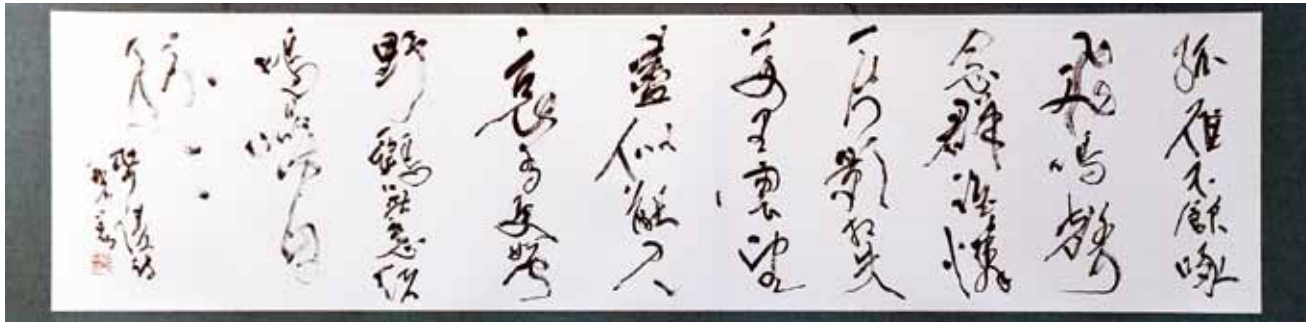 孤雁不飲啄
飛鳴聲
念群誰憐
一片影相失
萬里雲望
盡似猶見
哀多更聞
野鴉無意緒
鳴噪自
紛